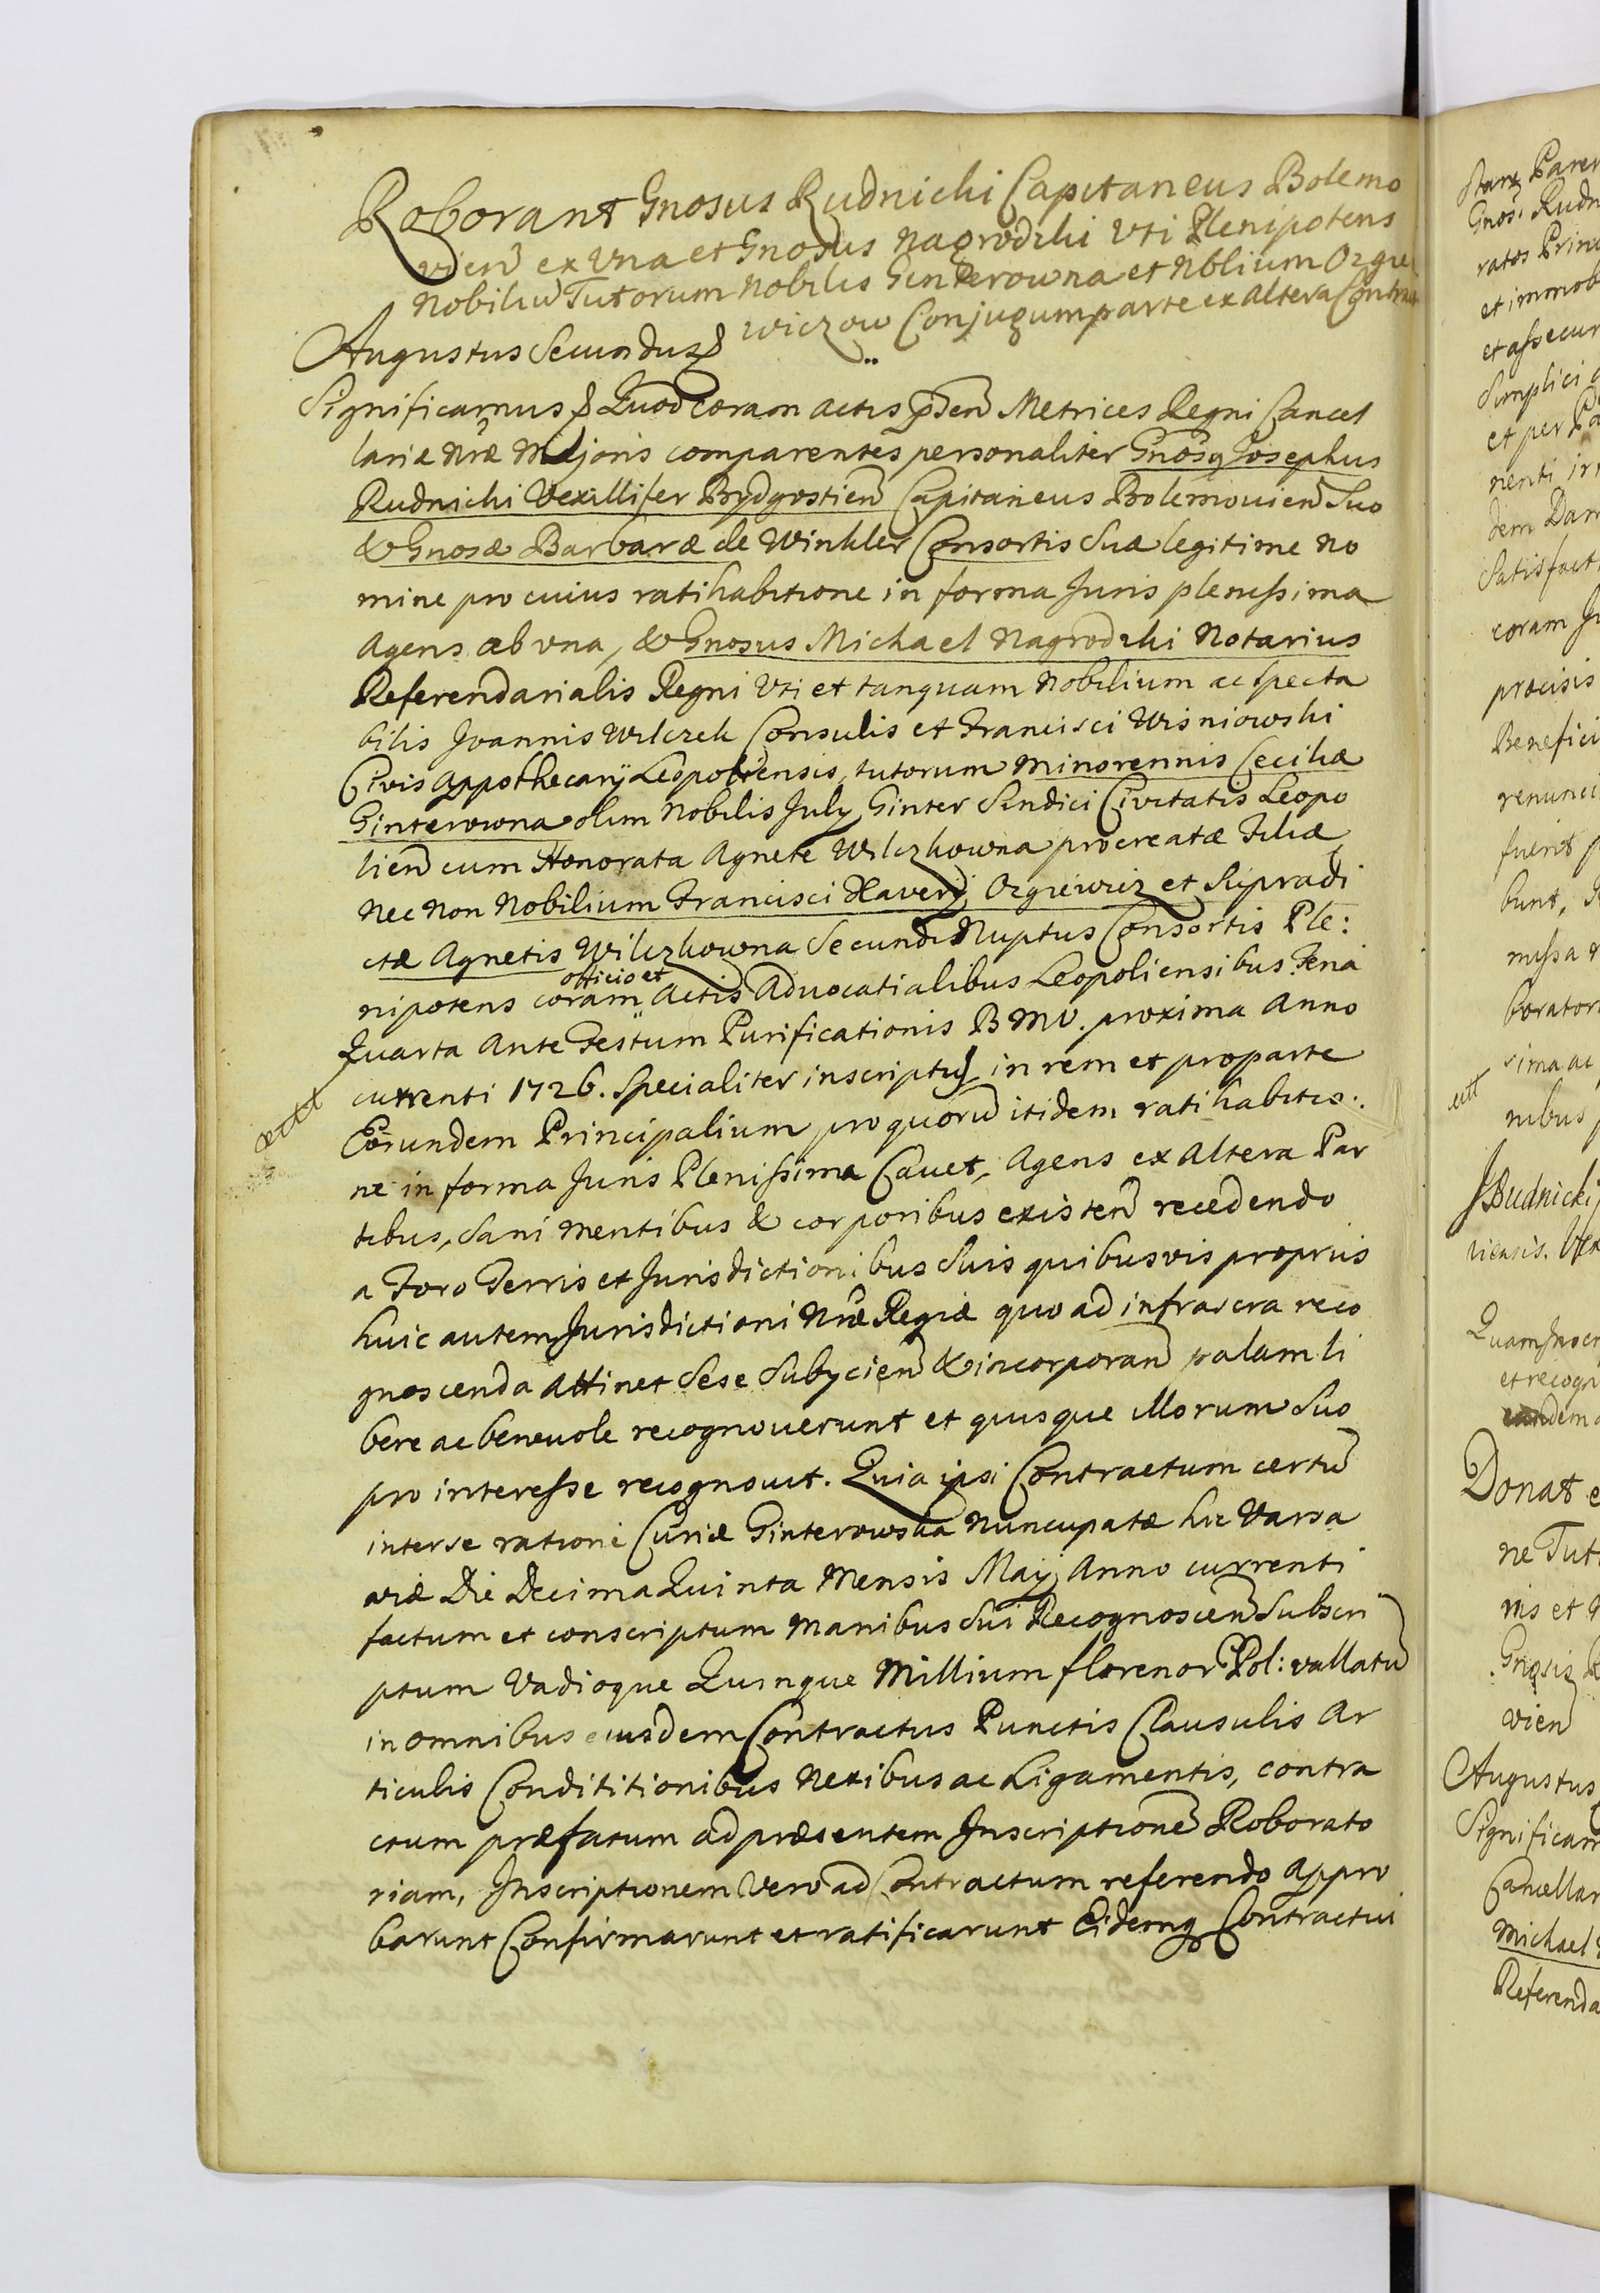 Roborant Gnosus Rudnicki Capitaneus Bolemo
vien ex Una et Gnosus Nagrodzki Uti Plenipotens
Nobiliu Tutorum Nobilis Ginterowna et Nblium Ozgie
wiczow Conjugum parte ex Altera
Augustus Secundus
Significamus Quod coram actis psen Metrices Regni Cancel
lariæ Nræ Majoris comparentes personaliter Gnosq Josephus
Rudnicki Vexillifer Bydgostien Capitaneus Bolemovien Suo
& Gnosæ Barbaræ de Winkler Consortis Suæ legitime no
mine pro cuius ratihabitione in forma Juris plenissima
Agens ab vna, & Gnosus Michael Nagrodzki Notarius
Referendarialis Regni Uti et tanquam Nobilium ac Specta
bilis Joannis Wilczek Consulis et Francisci Wisniowski
Civis Appothecarij Leopoliensis, tutorum Minorennis Ceciliæ
Ginterowna olim Nobilis July Ginter Sindici Civitatis Leopo
lien cum Honorata Agnete Wilczkowna procreatæ Filiæ
Nec Non Nobilium Francisci Xaverij Ozgiewicz et Supradi
ctæ Agnetis Wilczkowna Secundi Nuptus Consortis Ple:
nipotens coram officio et Actis Advocatialibus Leopoliensibus Feria
Quarta Ante Festum Purificationis BMV. proxima Anno
currenti 1726. Specialiter inscriptus in rem et pro parte
Eorundem Principalium pro quoru itidem ratihabitio:
ne in forma Juris Plenissima Cavet, Agens ex Altera Par
tibus, Sani Mentibus & corporibus existen recedendo
a Foro Terris et Jurisdictionibus Suis quibusvis propriis
huic autem Jurisdictioni Nræ Regiæ quo ad infrascra reco
gnoscenda Attinet Sese Subycien & incorporan palam li
bere ac benevole recognoverunt et quisque illorum Suo
pro interesse recognovit. Quia ipsi Contractum certu
inter se ratione Curiæ Ginterowska Nuncupatæ hic Varsa
viæ Die Decima Quinta Mensis Maij Anno currenti
factum et conscriptum Manibus Sui Recognoscen Subscri
ptum Vadioque Quinque Millium florenor Pol: vallatu
in omnibus eiusdem Contractus Punctis Clausulis Ar
ticulis Condititionibus Nexibus ac Ligamentis, contra
ctum præfatum ad præsentem Inscriptione Roborato
riam, Inscriptionem Vero ad Contractum referendo Appro
barunt Confirmarunt et ratificarunt Eidemq Contractui
Gnos: Rudn
ratos Prin
et immob
et assecur
Simplici
et per
nenti
dem Dam
Satisfact
coram
præcisis
Benefici
renunci
fuerit
bunt,
missa
borator
sima ac
nibus
Budnicki
viensis.
Quam Inscr
et recogn
eandem
Donat
ne Tut
nis et
vien
Augustus
Significam
Cancellar
Michael
Referenda